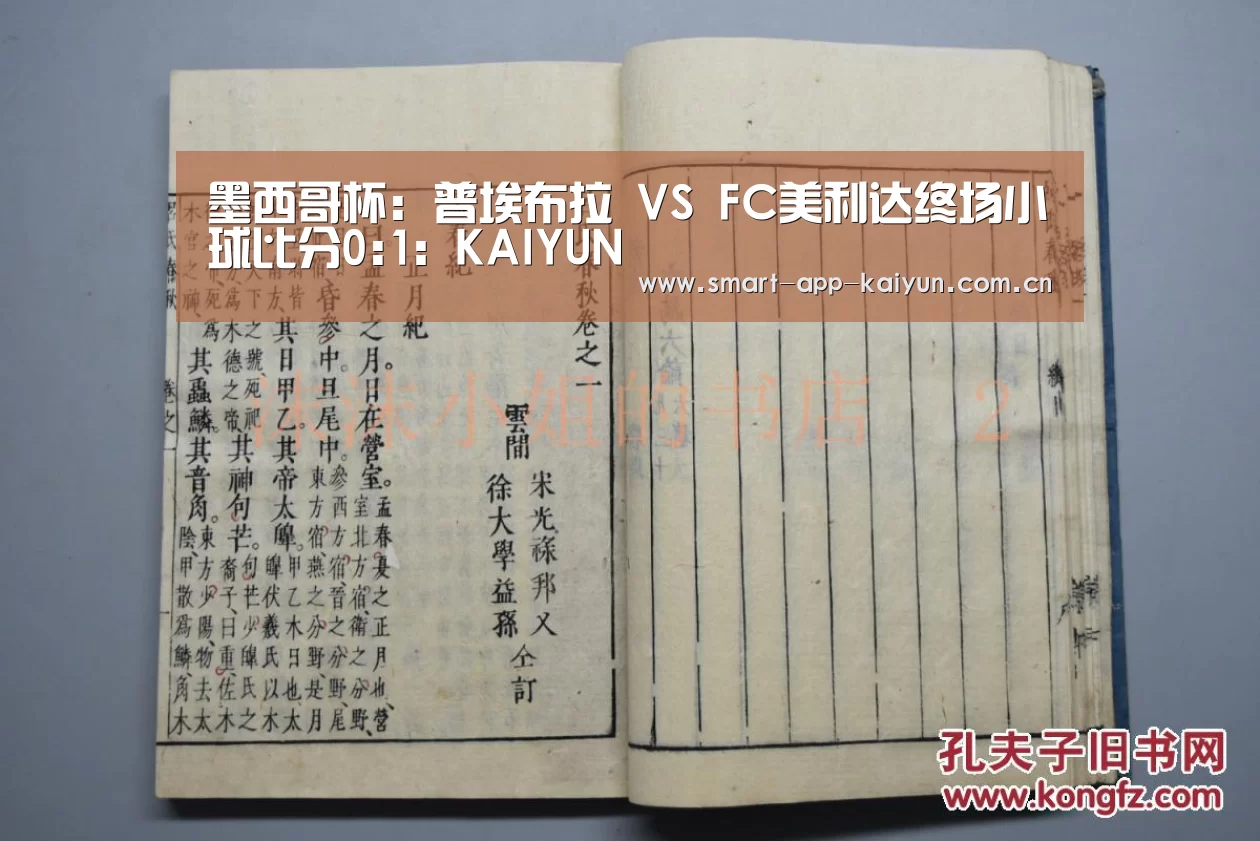 墨西哥杯：普埃布拉 VS FC美利达终场小
球比分0:1：KAIYUN
www.smart-app-kaiyun.com.cn
春秋卷之一
雲間
宋光祿邦乂
徐大學益孫
仝訂
正月紀
孟春之月。日在營室。
孟春夏之正月也、營
室北方宿衛之分野、
昏參中。旦尾中。
參西方宿、晉之分野、尾
東方宿、燕之分野、是月
其日甲乙。其帝太皥。
甲乙木日也、太
皥伏羲氏以木
之號死祀
木德之帝
其神句芒。
句芒少皥氏之
裔子、曰重、佐木
其蟲鱗。其音角。
東方少陽、物去太
陰、甲散爲鱗、角木
氏春秋
卷之一
一
沫沫小姐的书店 2
孔夫子旧书网
www.kongfz.com